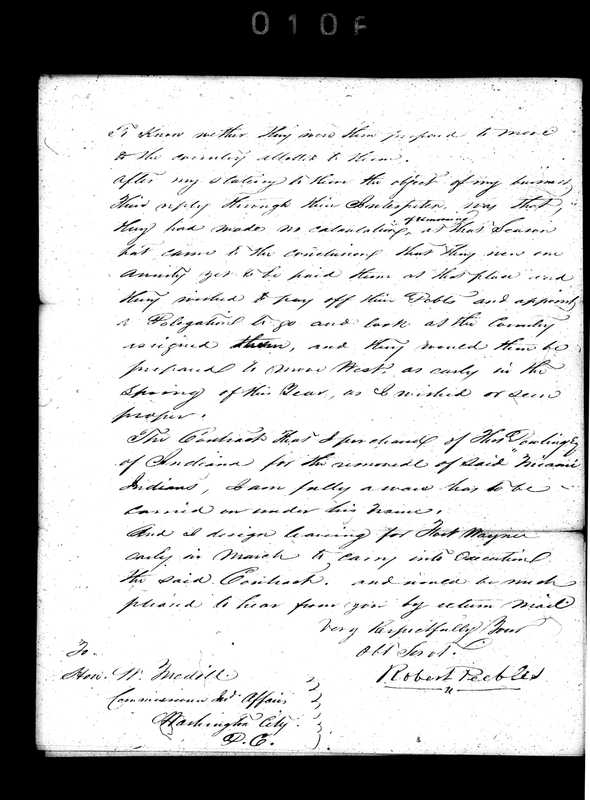 010
To Know wether they were then prepared to move
to the country alloted to them.
After my stating to them the object of my business,
Their reply through their Interpeter was that,
they had made no calculation of removing at that Season
but came to the conclusion that they new one
Annuity yet to be paid them at that place and
they wished to pay off their Debts and appoint
a Delogation to go and look at the Country
assigned them, and they would then be
prepared to move West. as early in the
Spring of this Year, as I wished or seen
proper.
The Contract that I purchased of Thos Dowling Esq
of Indiana for the removeal of said "Miamie
Indians, I am fully aware has to be
carried on under his name.
And I design leaving for Fort Wayne
early in March to carry into Execution
the said Contract. and would be much
pleased to hear from you by return Mail
Very Respectfully Your
Obt Servt.
Robert Peebles
To.
Hon. W. Medill
Commissioner Ind Affairs
Washington City
D.C.